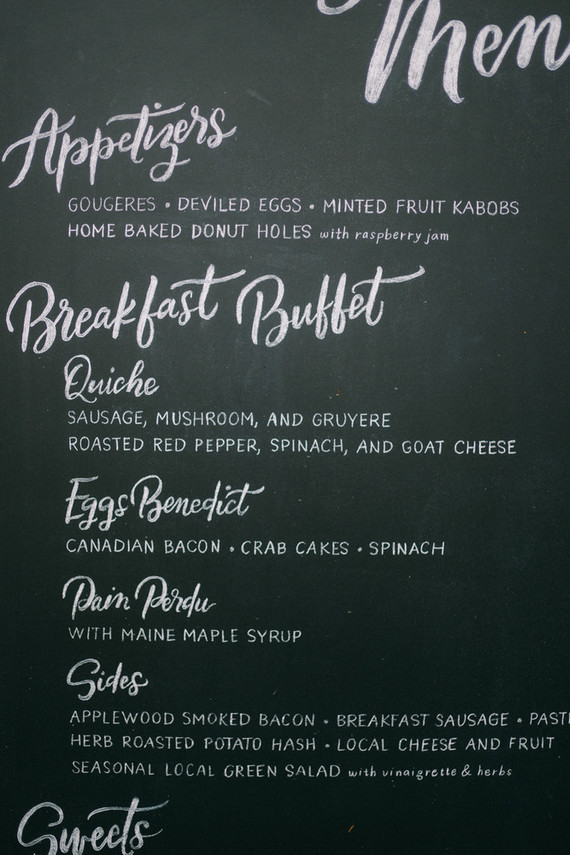 Men
Appetizers
GOUGERES • DEVILED EGGS • MINTED FRUIT KABOBS
HOME BAKED DONUT HOLES with raspberry jam
Breakfast Buffet
Quiche
SAUSAGE, MUSHROOM, AND GRUYERE
ROASTED RED PEPPER, SPINACH, AND GOAT CHEESE
Eggs Benedict
CANADIAN BACON • CRAB CAKES • SPINACH
Pain Perdu
WITH MAINE MAPLE SYRUP
Sides
APPLEWOOD SMOKED BACON • BREAKFAST SAUSAGE • PAST
HERB ROASTED POTATO HASH • LOCAL CHEESE AND FRUIT
SEASONAL LOCAL GREEN SALAD with vinaigrette & herbs
Sweets